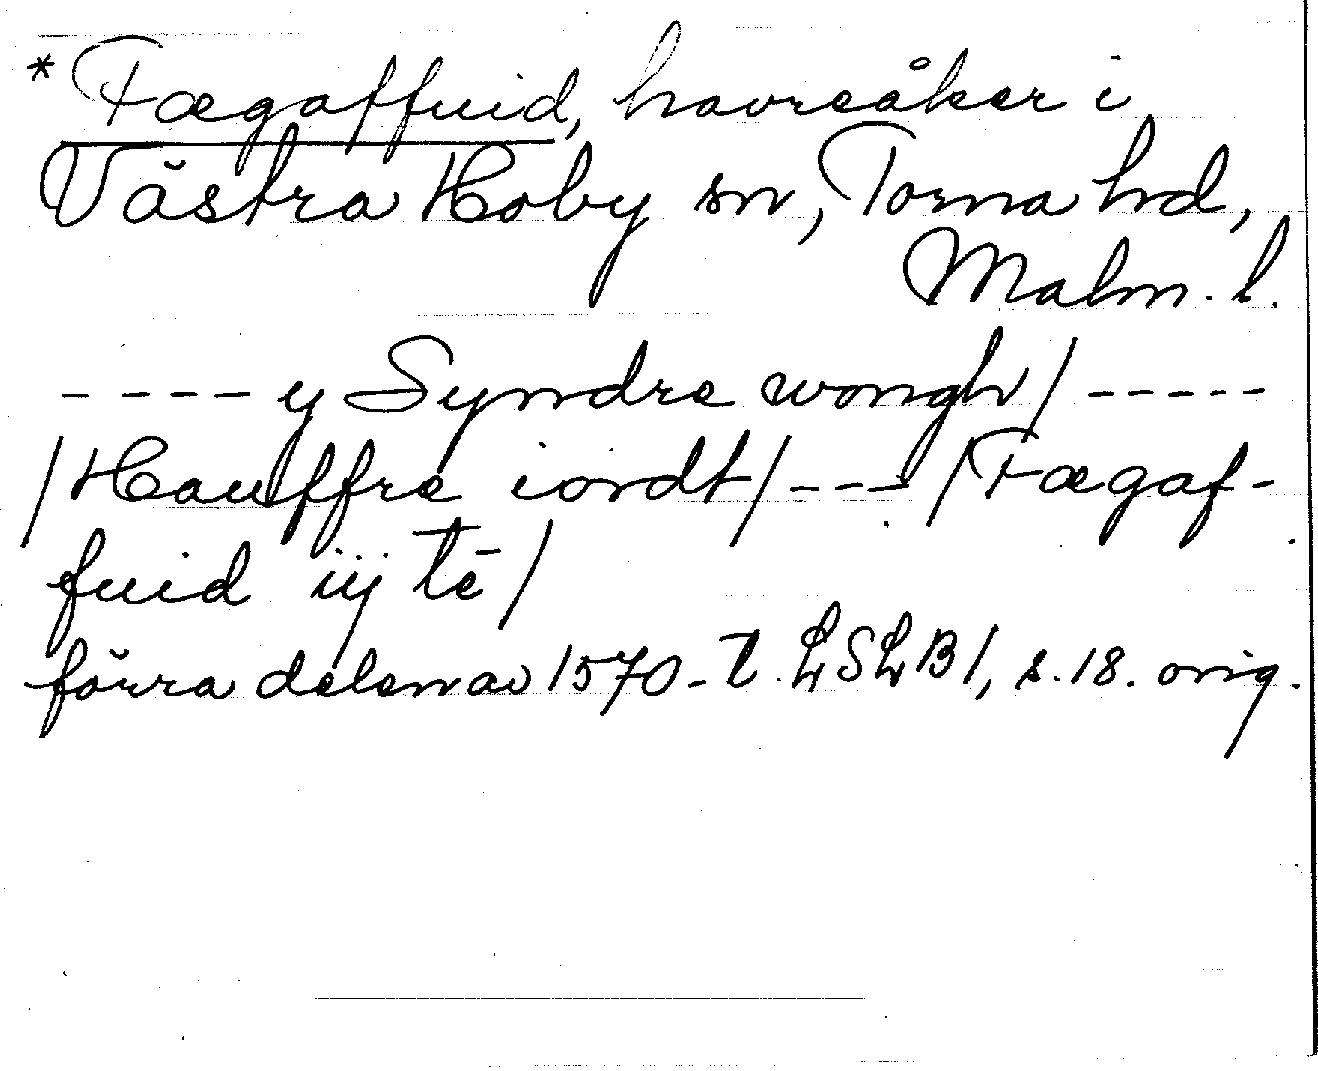 * Fægaffuid, havreåker i
Västra Hoby sn, Torna hd,
Malm. l.
---- y Syndre wongh/ -----
/Hauffre iordt/ --- /Fægaf-
fuid iij tē/
förra delen av 1570-t. LSLB1, s. 18. orig.